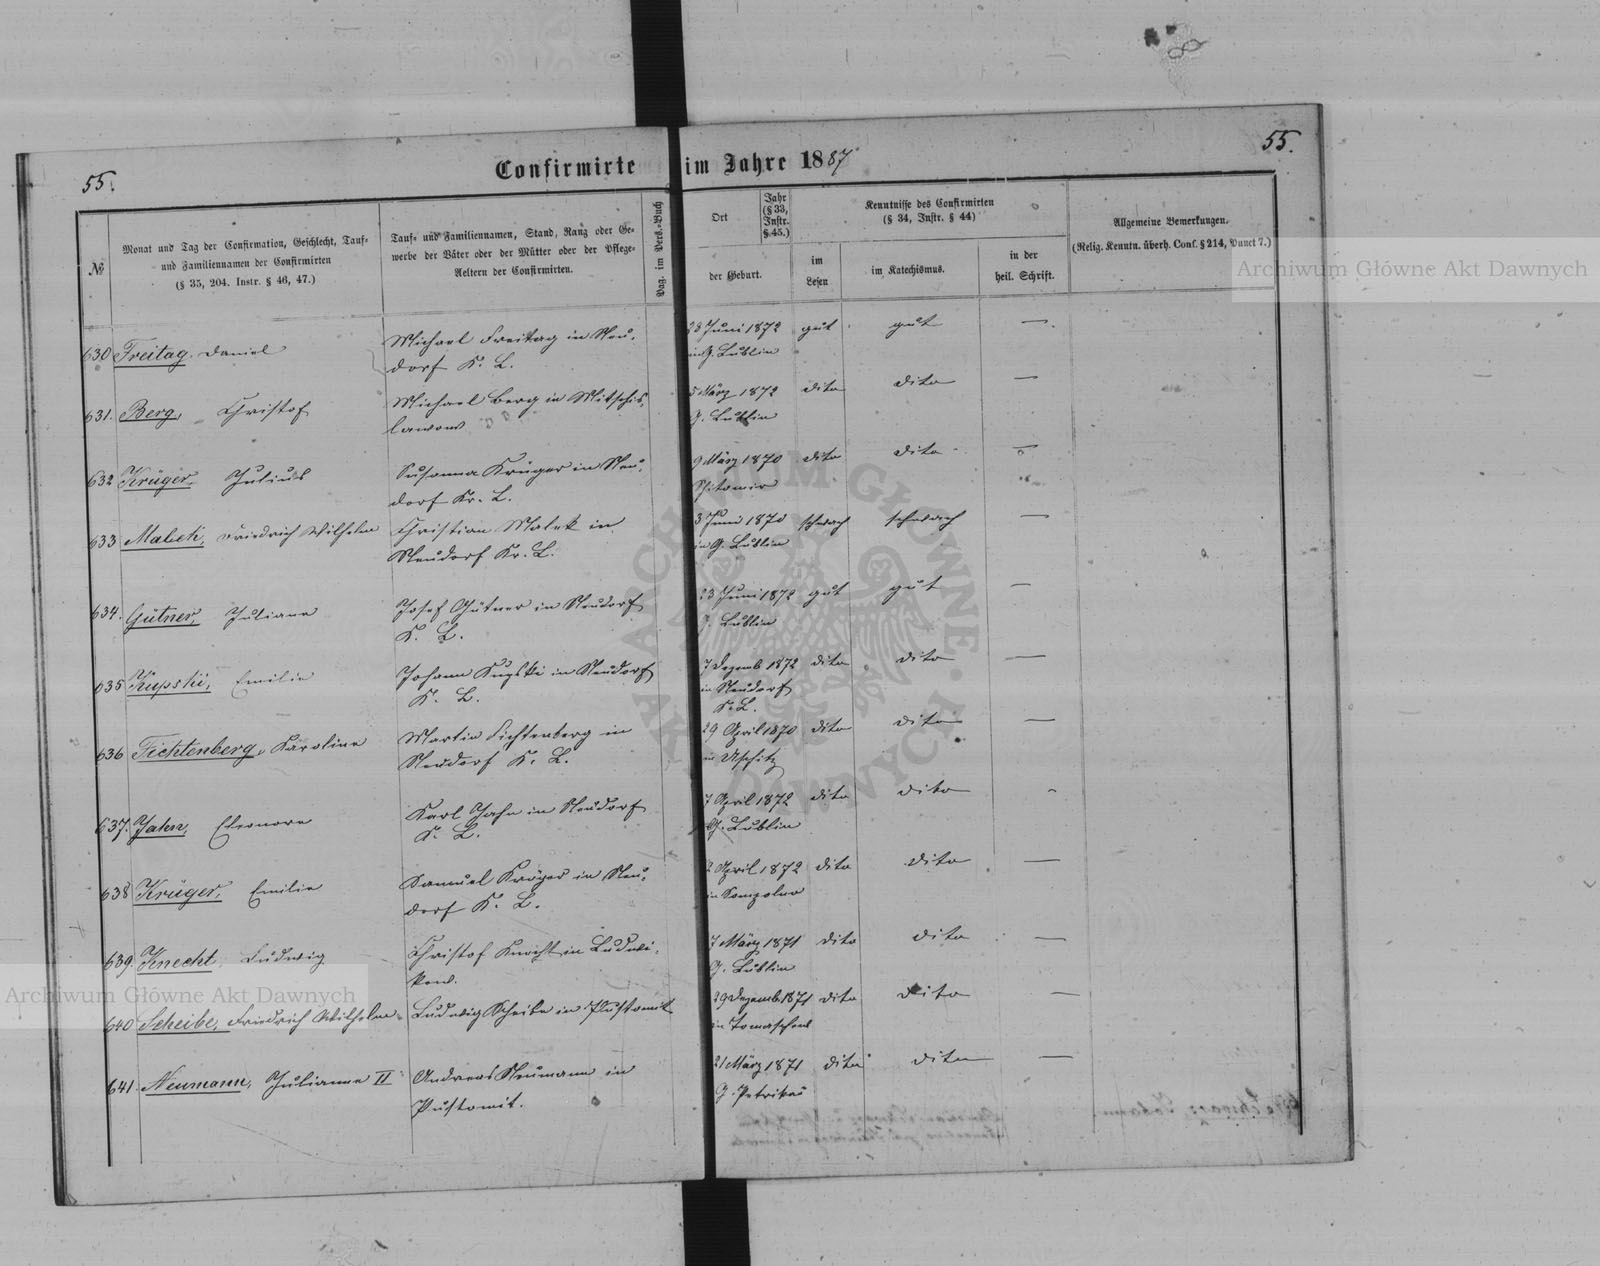 55.
55.
Confirmirte im Jahre 1887
№
Monat und Tag der Confirmation, Geschlecht, Tauf=
und Familiennamen der Confirmirten
(§ 35, 204. Instr. § 46, 47.)
Tauf= und Familiennamen, Stand, Rang oder Ge=
werbe der Väter oder der Mütter oder der Pflege=
Aeltern der Confirmirten.
Pag. im Pers.=Buch
Ort
Jahr
(§ 33,
Instr.
§ 45.)
der Geburt.
Kenntnisse des Confirmirten
(§ 34, Instr. § 44)
im
Lesen
im Katechismus.
in der
heil. Schrift.
Allgemeine Bemerkungen.
(Relig. Kenntn. überh. Conf. § 214, Punct 7.)
Archiwum Główne Akt Dawnych
630 Freitag. Daniel Michael Freitag in Neu- 23 Juni 1872 gut gut —
dorf K. L. in G. Lublin
631. Berg, Christof Michael Berg in Mitschis- 5 März 1872 dito dito —
lawow G. Lublin
632 Krüger Julius Susanna Krüger in Neu- 9 März 1870 dito dito —
dorf Kr. L. Schitomir
633 Malek, Friedrich Wilhelm Christian Malek in 3 Juni 1870 schwach schwach —
Neudorf Kr. L. in G. Lublin
634. Gütner, Juliane Josef Gütner in Neudorf 23 Juni 1872 gut gut —
K. L. G. Lublin
635 Kupski, Emilie Johann Kupski in Neudorf 7 Dezemb 1872 dito dito —
K. L. in Neudorf
K. L.
636 Fichtenberg, Karoline Martin Fichtenberg in 29 April 1870 dito dito —
Neudorf K. L. in Uschitz
637. Jahn, Eleonore Karl Jahn in Neudorf 7 April 1872 dito dito -
K. L. G. Lublin
638 Krüger, Emilie Samuel Krüger in Neu- 2 April 1872 dito dito —
dorf K. L. in Sompolno
639 Knecht, Ludwig Christof Knecht in Ludwi- 7 März 1871 dito dito —
kow. G. Lublin
640 Scheibe, Friedrich Wilhelm Ludwig Scheibe in Pustomit 29 Dezemb. 1871 dito dito —
in
641 Neumann, Julianne II Andreas Neumann in 21 März 1871 dito dito —
Pustomit. G. Petrikau
Archiwum Główne Akt Dawnych
ARCHIWUM GŁÓWNE AKT DAWNYCH